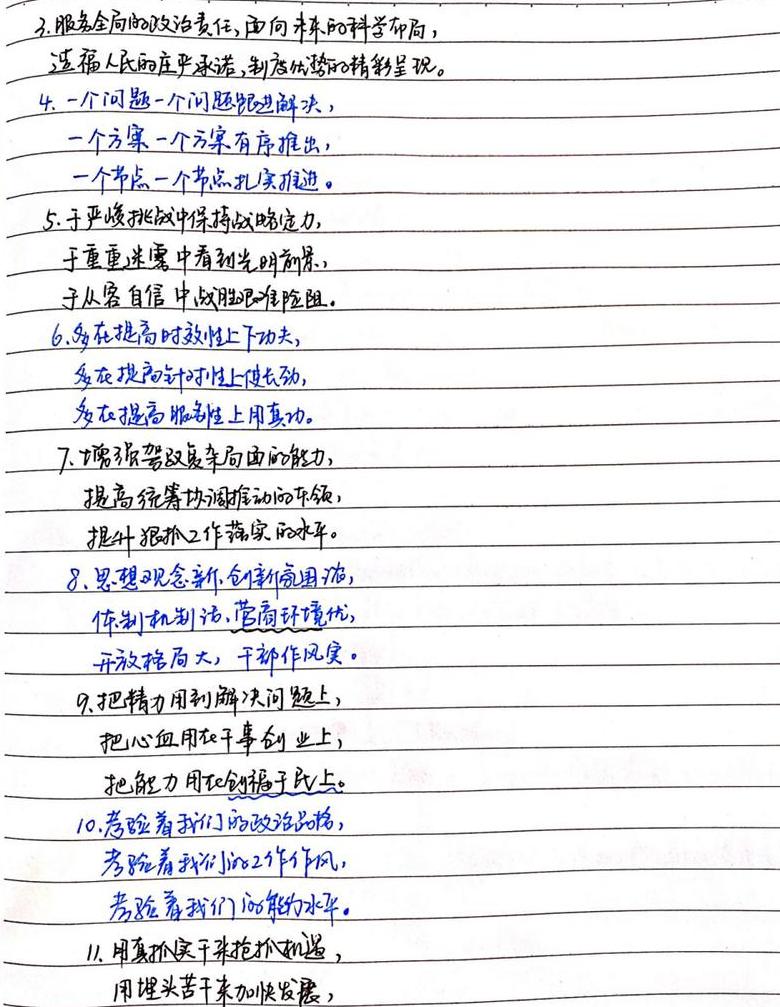 3.服务全局的政治责任,面向未来的科学布局,
造福人民的庄严承诺,制度优势的精彩呈现。
4.一个问题一个问题跟进解决,
一个方案一个方案有序推出,
一个节点一个节点扎实推进。
5.于严峻挑战中保持战略定力,
于重重迷雾中看到光明前景,
于从容自信中战胜艰难险阻。
6.多在提高时效性上下功夫,
多在提高针对性上使长劲,
多在提高服务性上用真功。
7.增强驾驭复杂局面的能力,
提高统筹协调推动的本领,
提升狠抓工作落实的水平。
8.思想观念新、创新氛围浓,
体制机制活、营商环境优,
开放格局大,干部作风实。
9.把精力用到解决问题上,
把心血用在干事创业上,
把能力用在创福于民上。
10.考验着我们的政治品格,
考验着我们的工作作风,
考验着我们的能力水平。
11.用真抓实干来抢抓机遇,
用埋头苦干来加快发展,